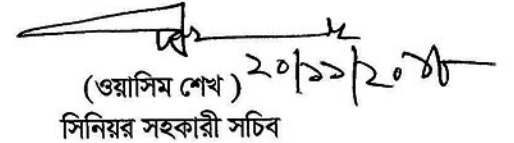 (ওয়াসিম শেখ) ২০/১১/২০১৮
সিনিয়র সহকারী সচিব